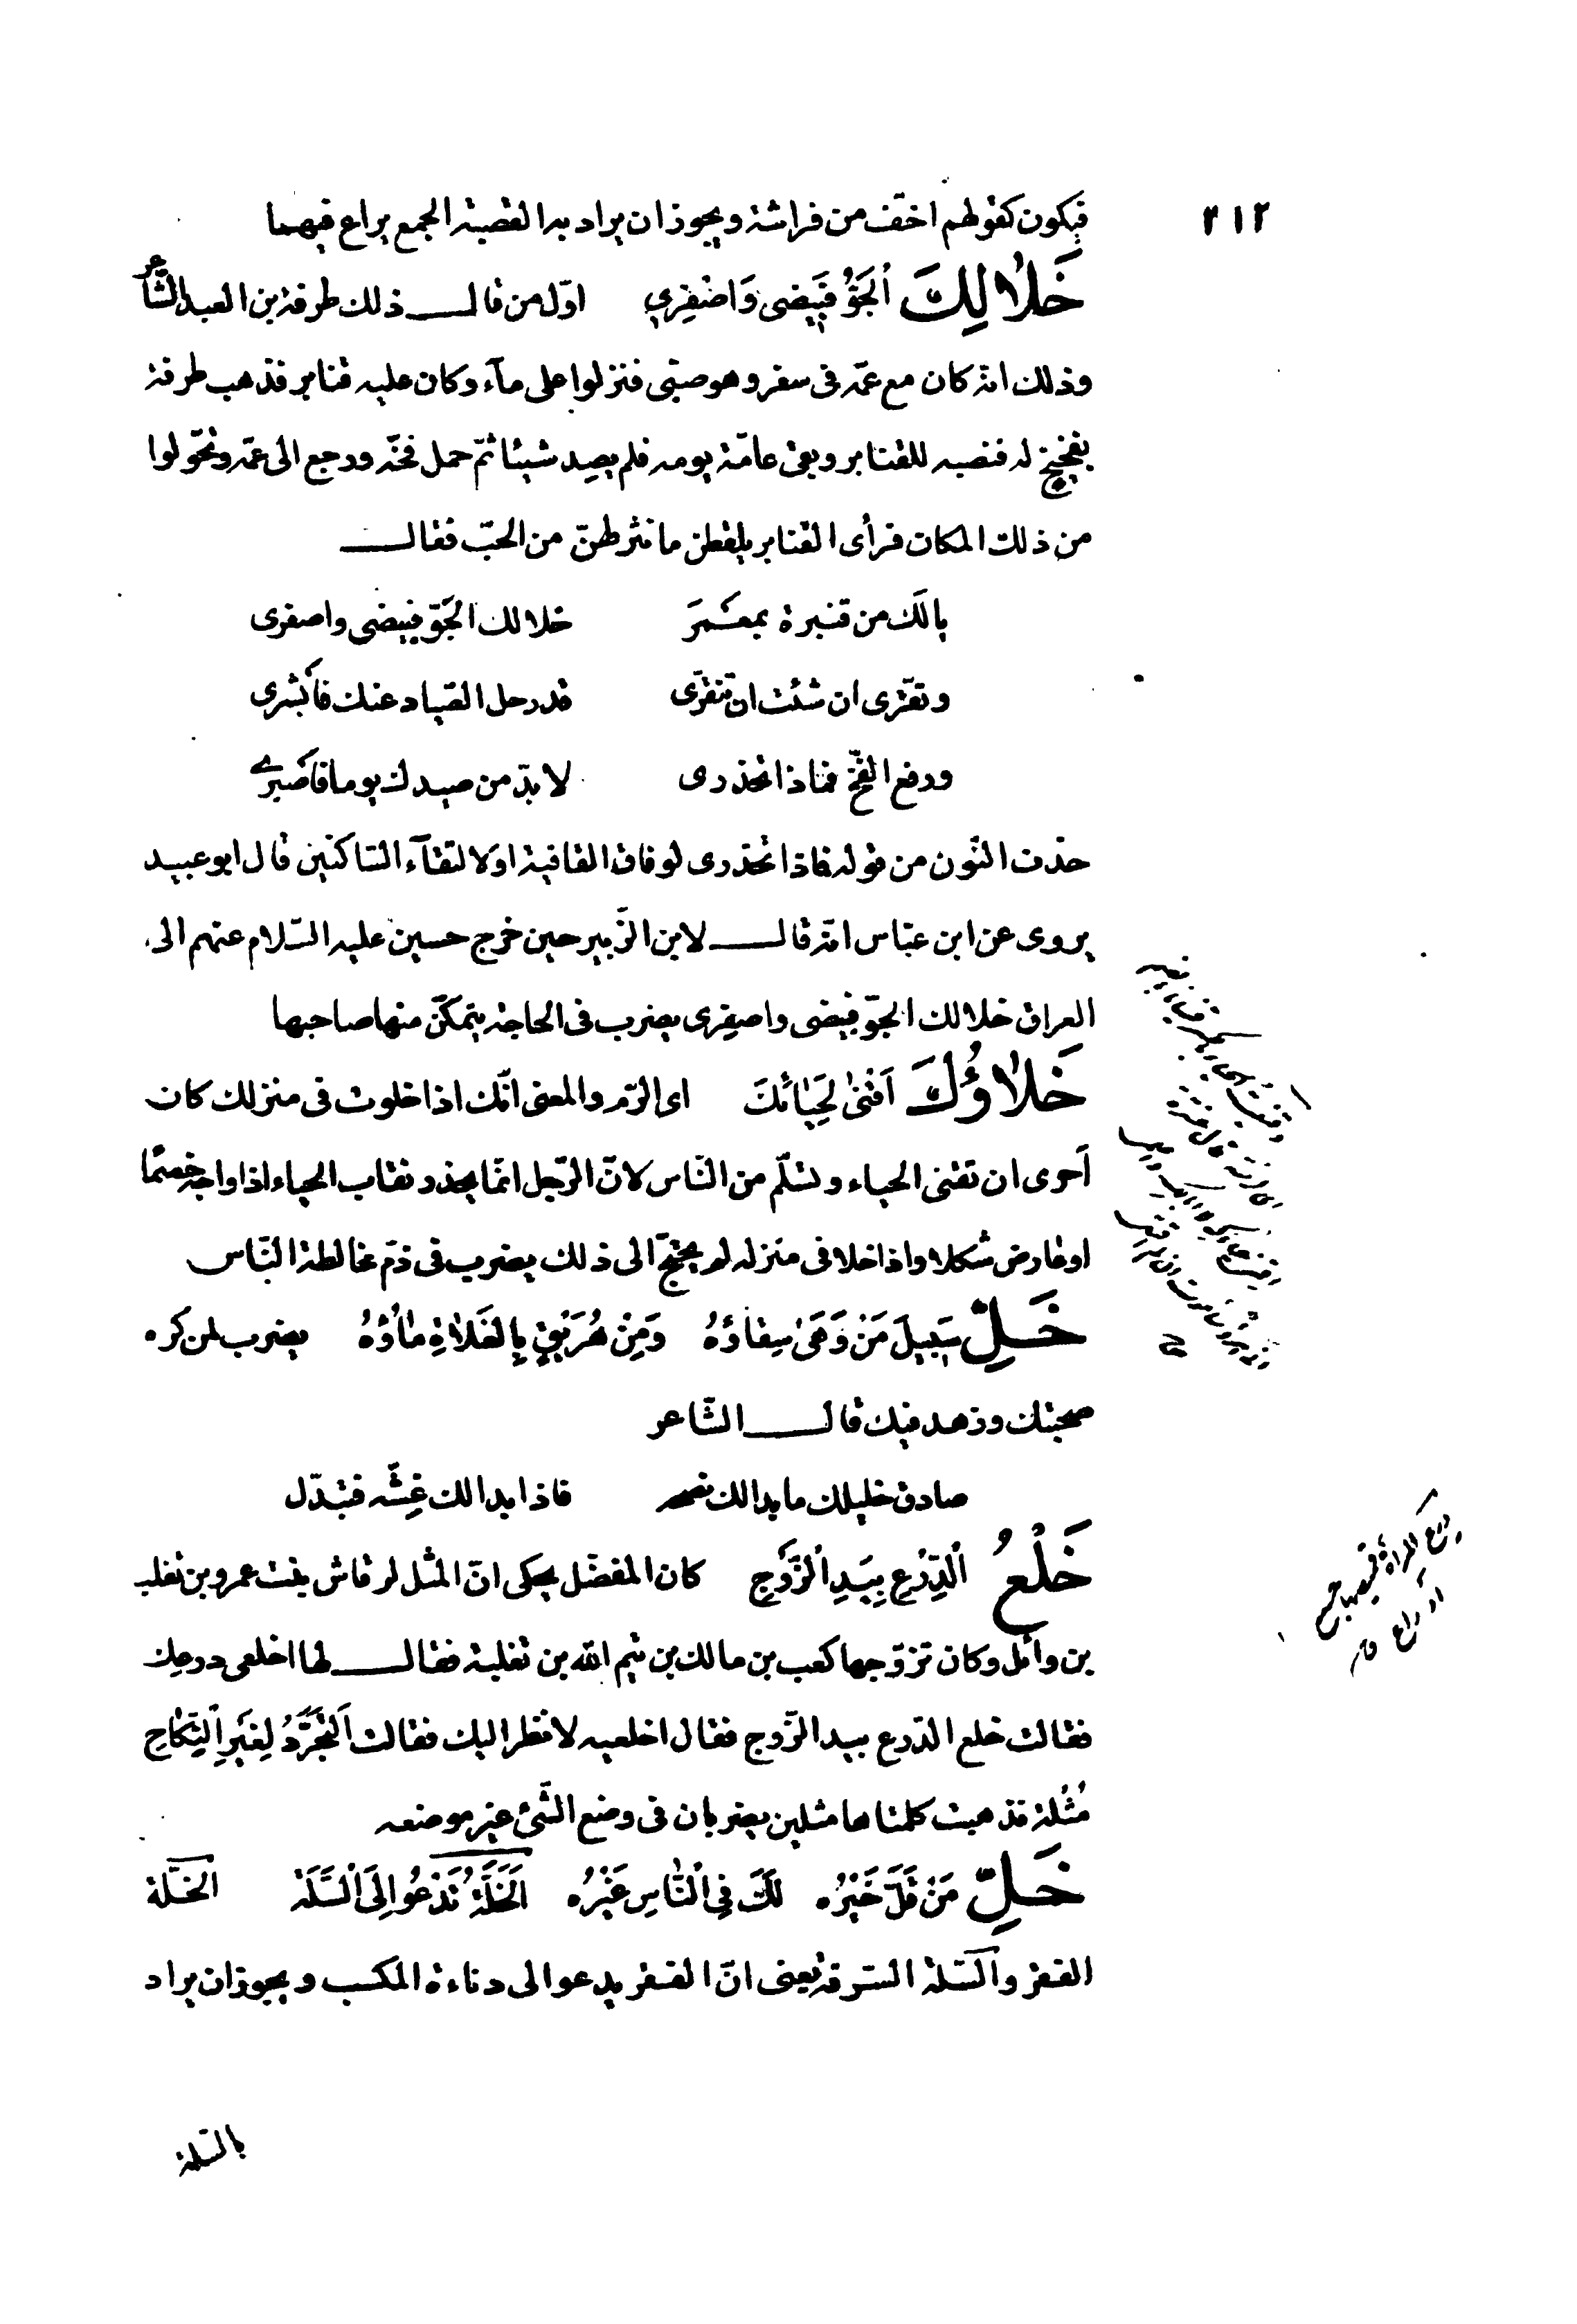 ٢١٢
فيكون كقولهم اخفّ من فراشة ويجوز ان يراد به القصبة الجمع يراع فيهما
خَلا لَكِ الجَوُّ فَبِيضِى وَاصْفِرِى اوّل من قال ذلك طرفة بن العبد الشّاعر
وذلك انّه كان مع عمّه فى سفر وهو صبىّ فنزلوا على مآء وكان عليه قنابر فذهب طرفة
بفخيخ له فنصبه للقنابر وبقى عامّة يومه فلم يصِد شيئا ثمّ حمل فخّه ورجع الى عمّه وتحوّلوا
من ذلك المكان فرأى القنابر يلقطن ما نثر لهنّ من الحبّ فقال
يا لَك من قنبرة بمعمَر خلا لك الجَوّ فبيضى واصفرى
ونقّرى ان شئت ان تنقّرى قد رحل الصّياد عنك فأبشرى
ورفع الفخّ فماذا تحذرى لا بدّ من صيدك يوما فاصبرى
حذف النّون من قوله فماذا تحذرى لوفاق القافية او لالتقآء السّاكنين قال ابو عبيد
يروى عن ابن عبّاس انّه قال لابن الزّبير حين خرج حسين عليه السّلام عنهم الى
العراق خلا لك الجوّ فبيضى واصفِرى يضرب فى الحاجة يتمكّن منها صاحبها
خَلاؤُكَ اَقْنىٰ لِحَيائِكَ اى الزم والمعنى انّك اذا خلوت فى منزلك كان
اَحرى ان تقنى الحياء وتسلّم من النّاس لانّ الرّجل انّما يحذر نقاب الحياء اذا واجه خصمًا
او عارض شكلا واذا خلا فى منزله لم يحتجّ الى ذلك يضرب فى ذمّ مخالطة النّاس
خَلِّ سَبِيلَ مَنْ وَهَىٰ سِقاؤهُ وَمِنْ هُرِيْقَ بِالفَلاةِ ماؤُهُ يضرب لمن كره
صحبتك وزهد فيك قال الشّاعر
صادق خليلك ما بدا لك نصحه فاذا بدا لك غِشّه فتبدّل
خَلْعُ الدِّرْعِ بِيَدِ الزَّوْجِ كان المفضّل يحكى انّ المثل لرقاش بنت عمرو بن تغلب
بن وائل وكان تزوّجها كعب بن مالك بن تيم الله بن ثعلبة فقال لها اخلعى درعك
فقالت خلع الدّرع بيد الزّوج فقال اخلعيه لانظر اليك فقالت اَلتَّجَرُّدُ لِغَيْرِ النِّكاحِ
مُثْلة فذهبت كلمتاها مثلين يضربان فى وضع الشّئ غير موضعه
خَلِّ مَنْ قَلَّ خَيْرُه لَكَ فِى النّاسِ غَيْرُه اَلخَلَّةُ تَدْعُوا اِلَى السَّلَّة الخلّة
الفقر والسّلّة السّرقة يعنى انّ الفقر يدعو الى دناءة المكسب ويجوز ان يراد
بالسّلّة
درع المرأة قميصها ج
ادراع ق